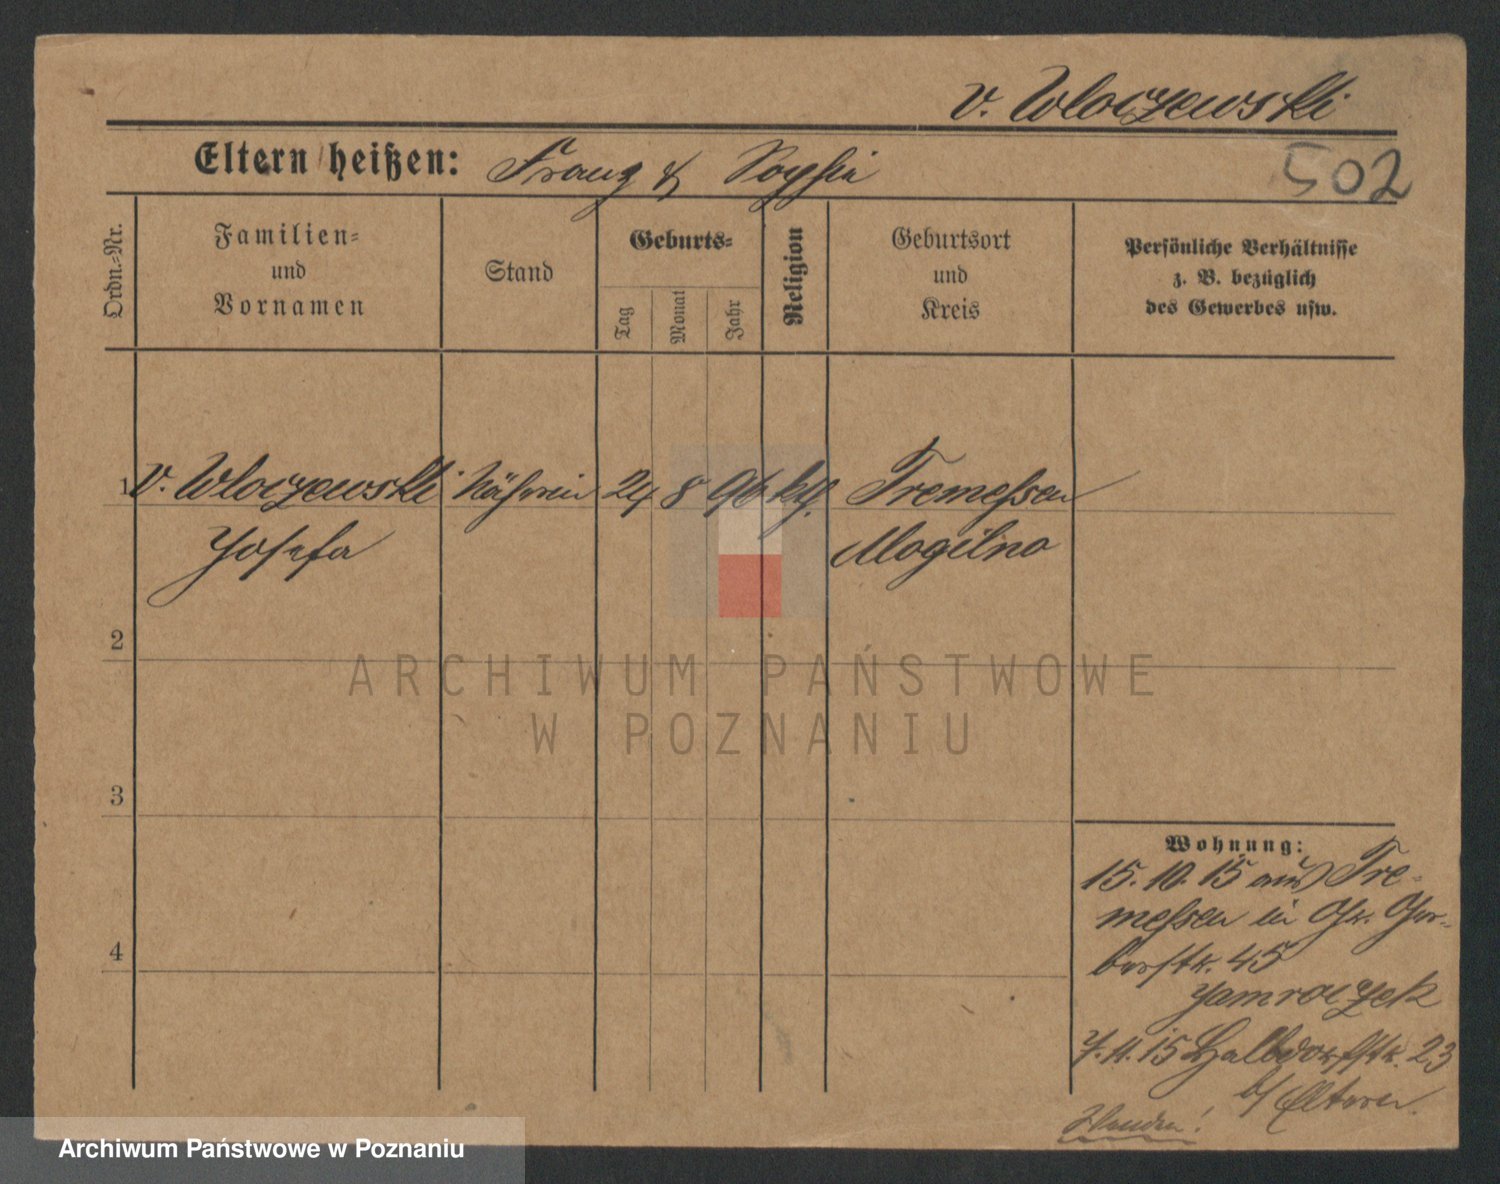 v. Wloczewski
Eltern heißen: Franz & Sophia
502
Ordn.-Nr.
Familien-
und
Vornamen
Stand
Geburts-
Tag
Monat
Jahr
Religion
Geburtsort
und
Kreis
Persönliche Verhältnisse
z. B. bezüglich
des Gewerbes usw.
1 v. Wloczewski Näherin 24 8 96 kth. Tremessen
Josefa Mogilno
2
ARCHIWUM PAŃSTWOWE
W POZNANIU
3
Wohnung:
15. 10. 15 aus Tre-
messen in Gr. Ger-
berstr. 45
Jamroczek
4
7. 11. 15 Halbdorfstr. 23
b/ Eltern.
Archiwum Państwowe w Poznaniu